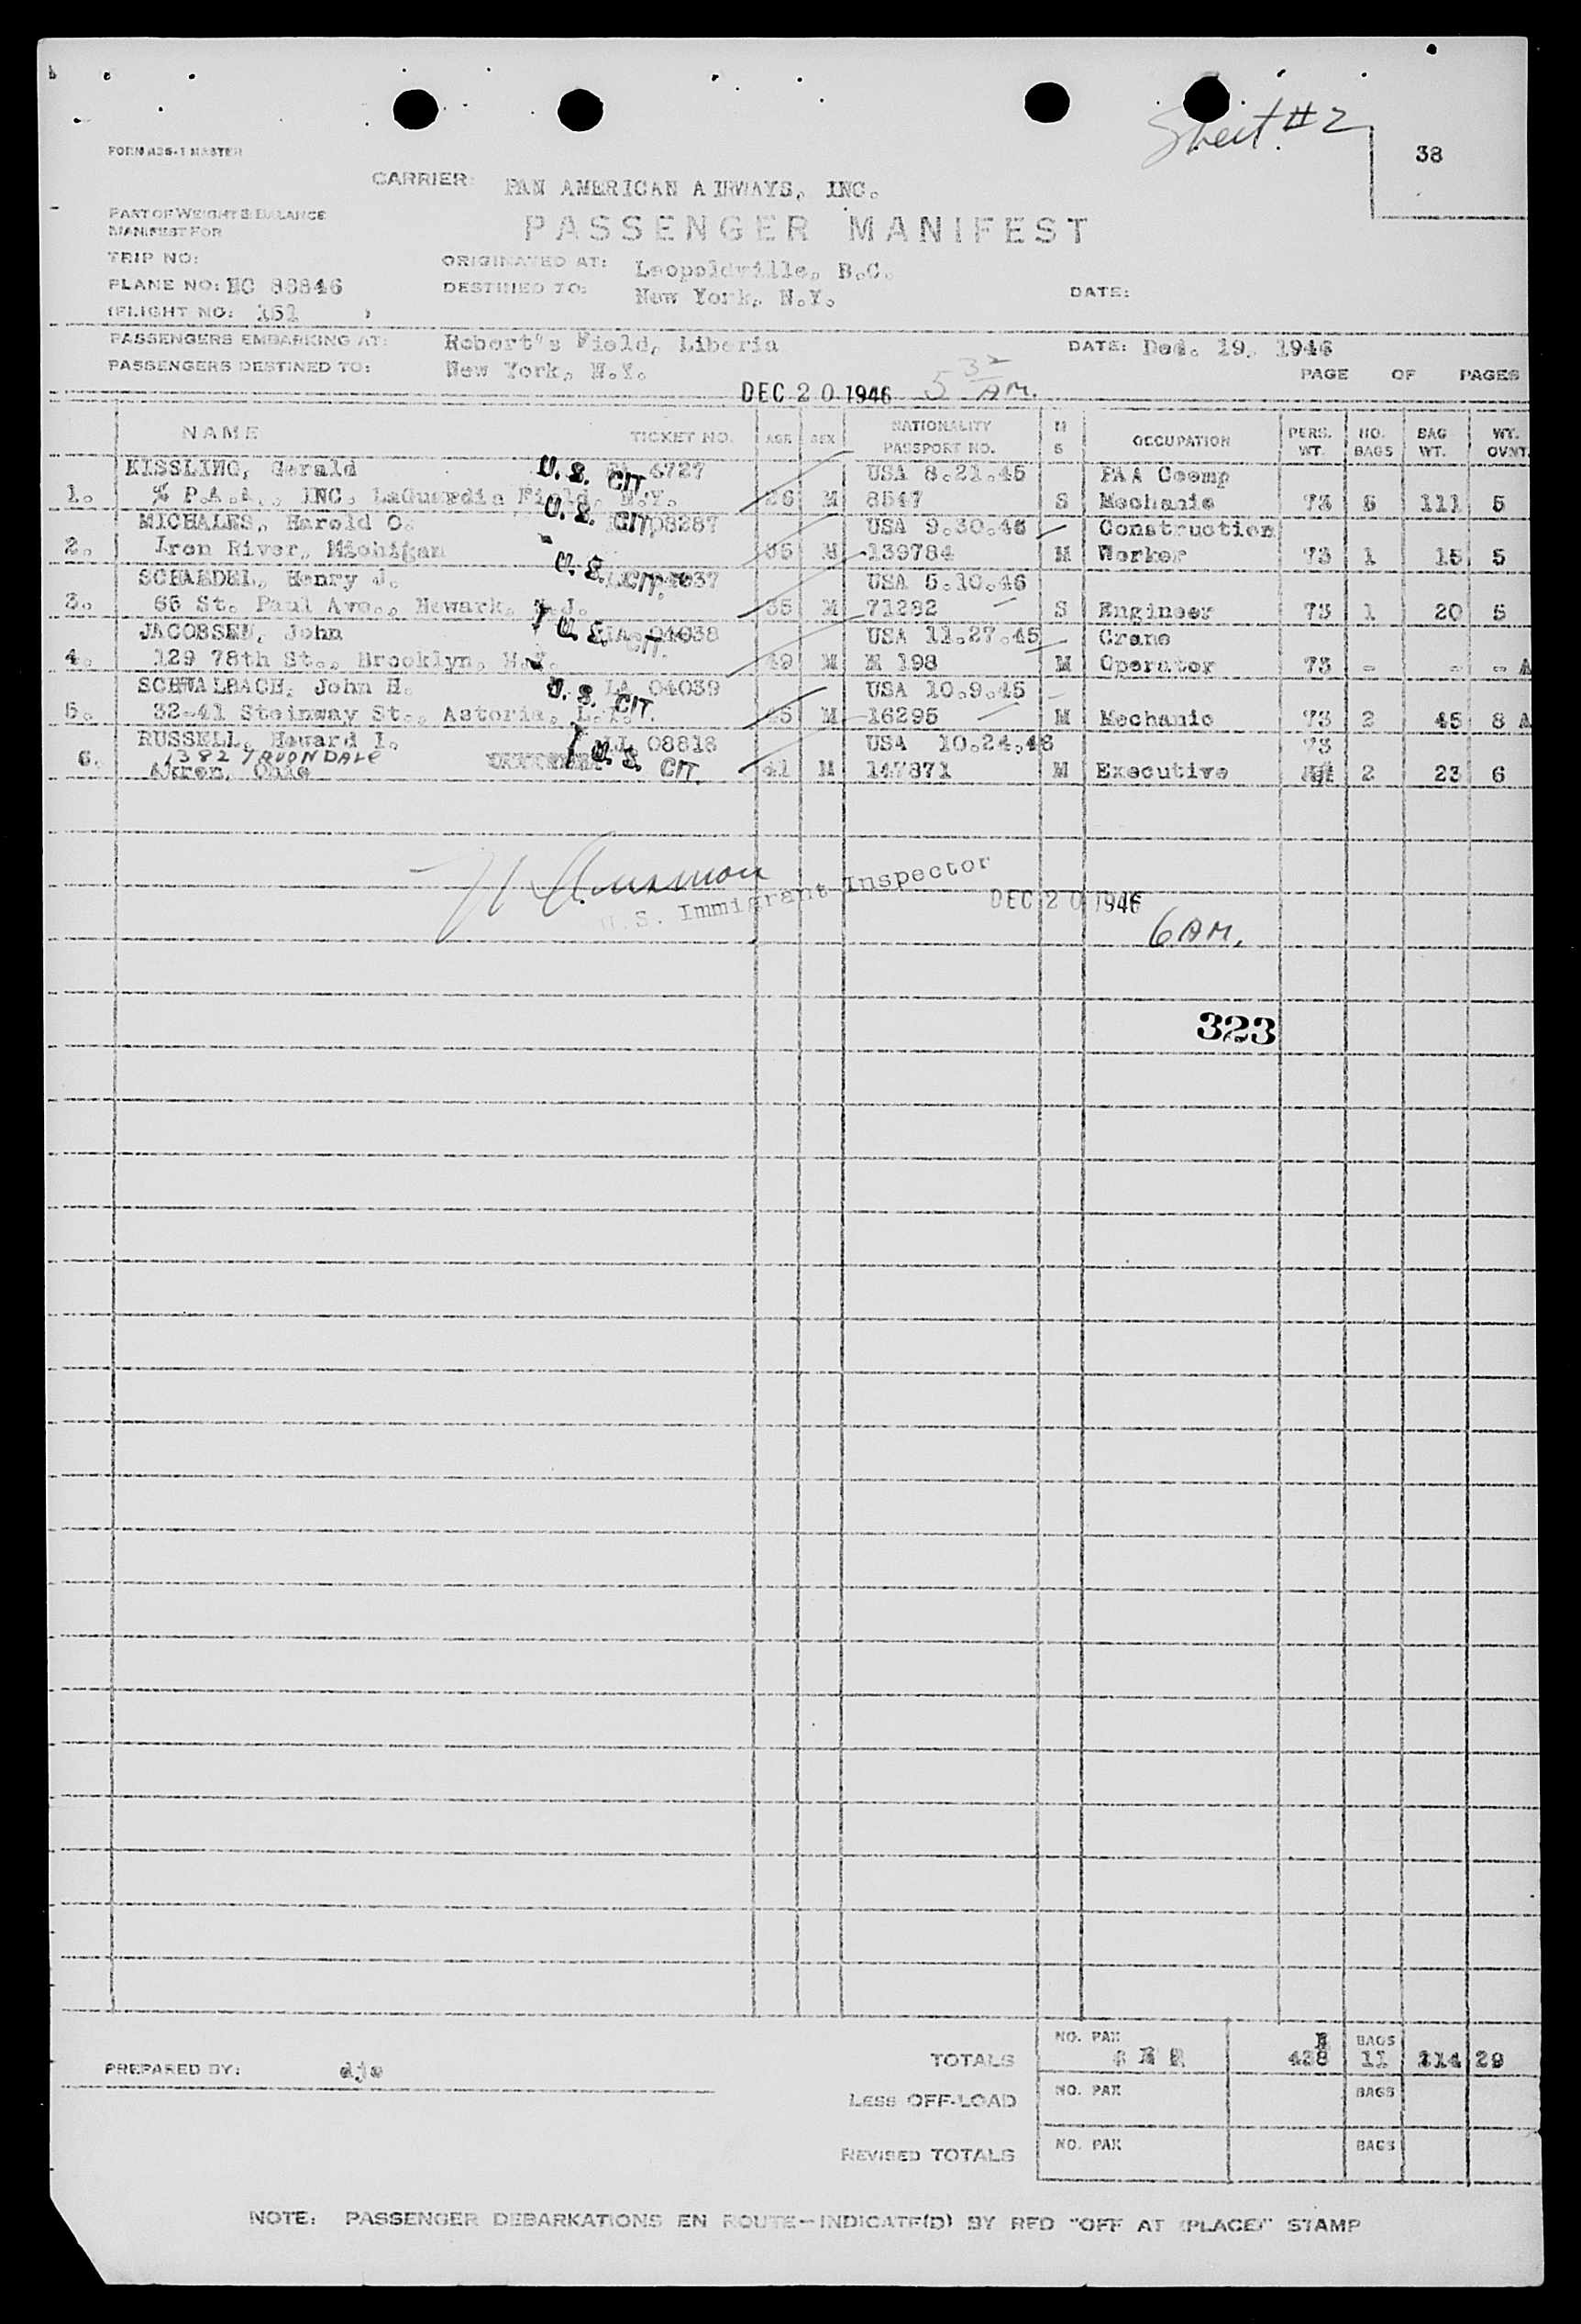 Sheet #2
38
FORM A36-1 MASTER
CARRIER: PAN AMERICAN AIRWAYS, INC.
PART OF WEIGHT & BALANCE
MANIFEST FOR
PASSENGER MANIFEST
TRIP NO:
ORIGINATED AT: Leopoldville, B.C.
PLANE NO: NC 88846
DESTINED TO: New York, N.Y.
DATE:
(FLIGHT NO: 151 )
PASSENGERS EMBARKING AT: Robert's Field, Liberia DATE: Dec. 19, 1946
PASSENGERS DESTINED TO: New York, N.Y.
PAGE OF PAGES
DEC 20 1946 5 32 AM.
NAME TICKET NO. AGE SEX NATIONALITY PASSPORT NO. M S OCCUPATION PERS. WT. NO. BAGS BAG WT. WT. OVNT.
KISSLING, Gerald U.S. CIT. 6727 USA 8.21.45 PAA Coemp
1. % P.A.A., INC. LaGuardia Field, N.Y. 26 M 8547 S Mechanic 73 5 111 5
MICHALES, Harold O. U.S. CIT. 08287 USA 9.30.46 Construction
2. Iron River, Michigan 35 M 139784 M Worker 73 1 15 5
SCHAEDEL, Henry J. U.S. CIT. 04037 USA 5.10.46
3. 66 St. Paul Ave., Newark, N.J. 35 M 71282 S Engineer 73 1 20 5
JACOBSEN, John U.S. CIT. LA 04038 USA 11.27.45 Crane
4. 129 78th St., Brooklyn, N.Y. 49 M M 198 M Operator 73 - - - A
SCHWALBACH, John H. U.S. CIT. LA 04039 USA 10.9.45
5. 32-41 Steinway St., Astoria, L.I. 45 M 16295 M Mechanic 73 2 45 8 A
RUSSELL, Howard I. U.S. CIT. 08818 USA 10.24.46 73
1382 AVONDALE
6. Akron, Ohio 41 M 147871 M Executive 2 23 6
U.S. Immigrant Inspector
DEC 20 1946
6 AM.
323
PREPARED BY: djs
TOTALS NO. PAX 438 BAGS 11 214 29
LESS OFF-LOAD NO. PAX BAGS
REVISED TOTALS NO. PAX BAGS
NOTE: PASSENGER DEBARKATIONS EN ROUTE-INDICATE(D) BY RED "OFF AT (PLACE)" STAMP